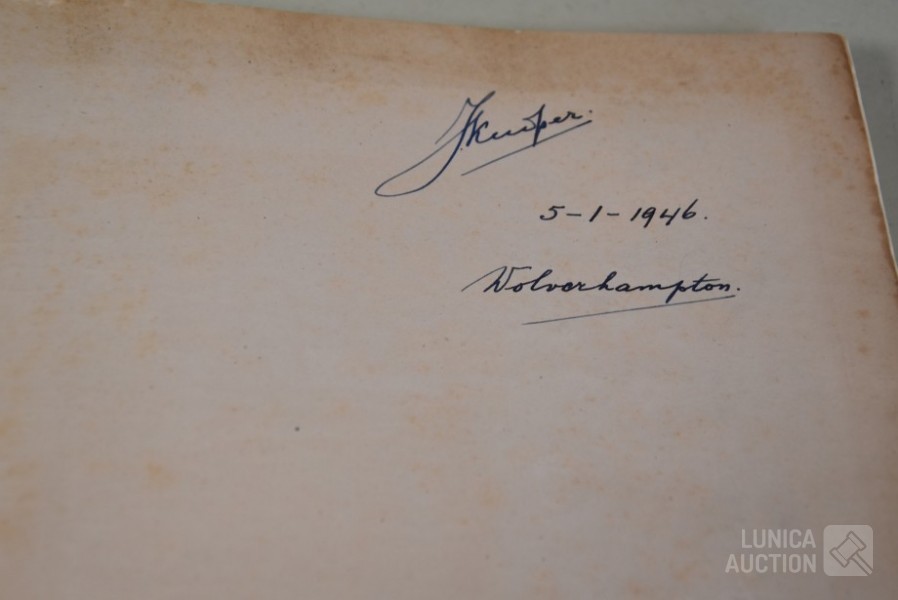 JKuiper.
5-1-1946.
Wolverhampton.
LUNICA
AUCTION